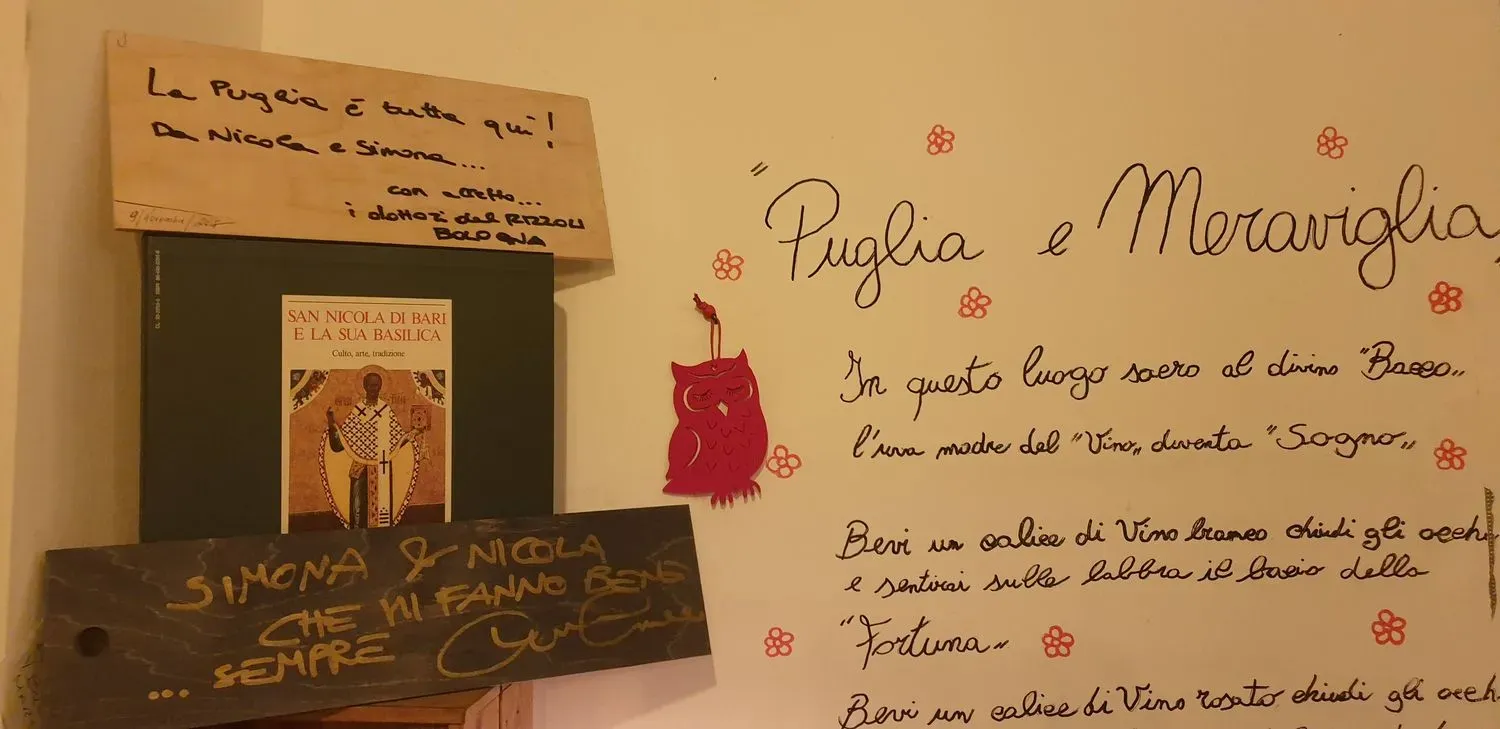 La Puglia è tutta qui!
Da Nicola e Simona...
con affetto...
i dottori del RIZZOLI
BOLOGNA
SAN NICOLA DI BARI
E LA SUA BASILICA
Culto, arte, tradizione
SIMONA & NICOLA
CHE MI FANNO BENE
... SEMPRE
"Puglia e Meraviglia"
In questo luogo sacro al divino "Bacco"
l'uva madre del "Vino" diventa "Sogno"
Bevi un calice di Vino bianco chiudi gli occhi
e sentirai sulle labbra il bacio della
"Fortuna"
Bevi un calice di Vino rosato chiudi gli occh